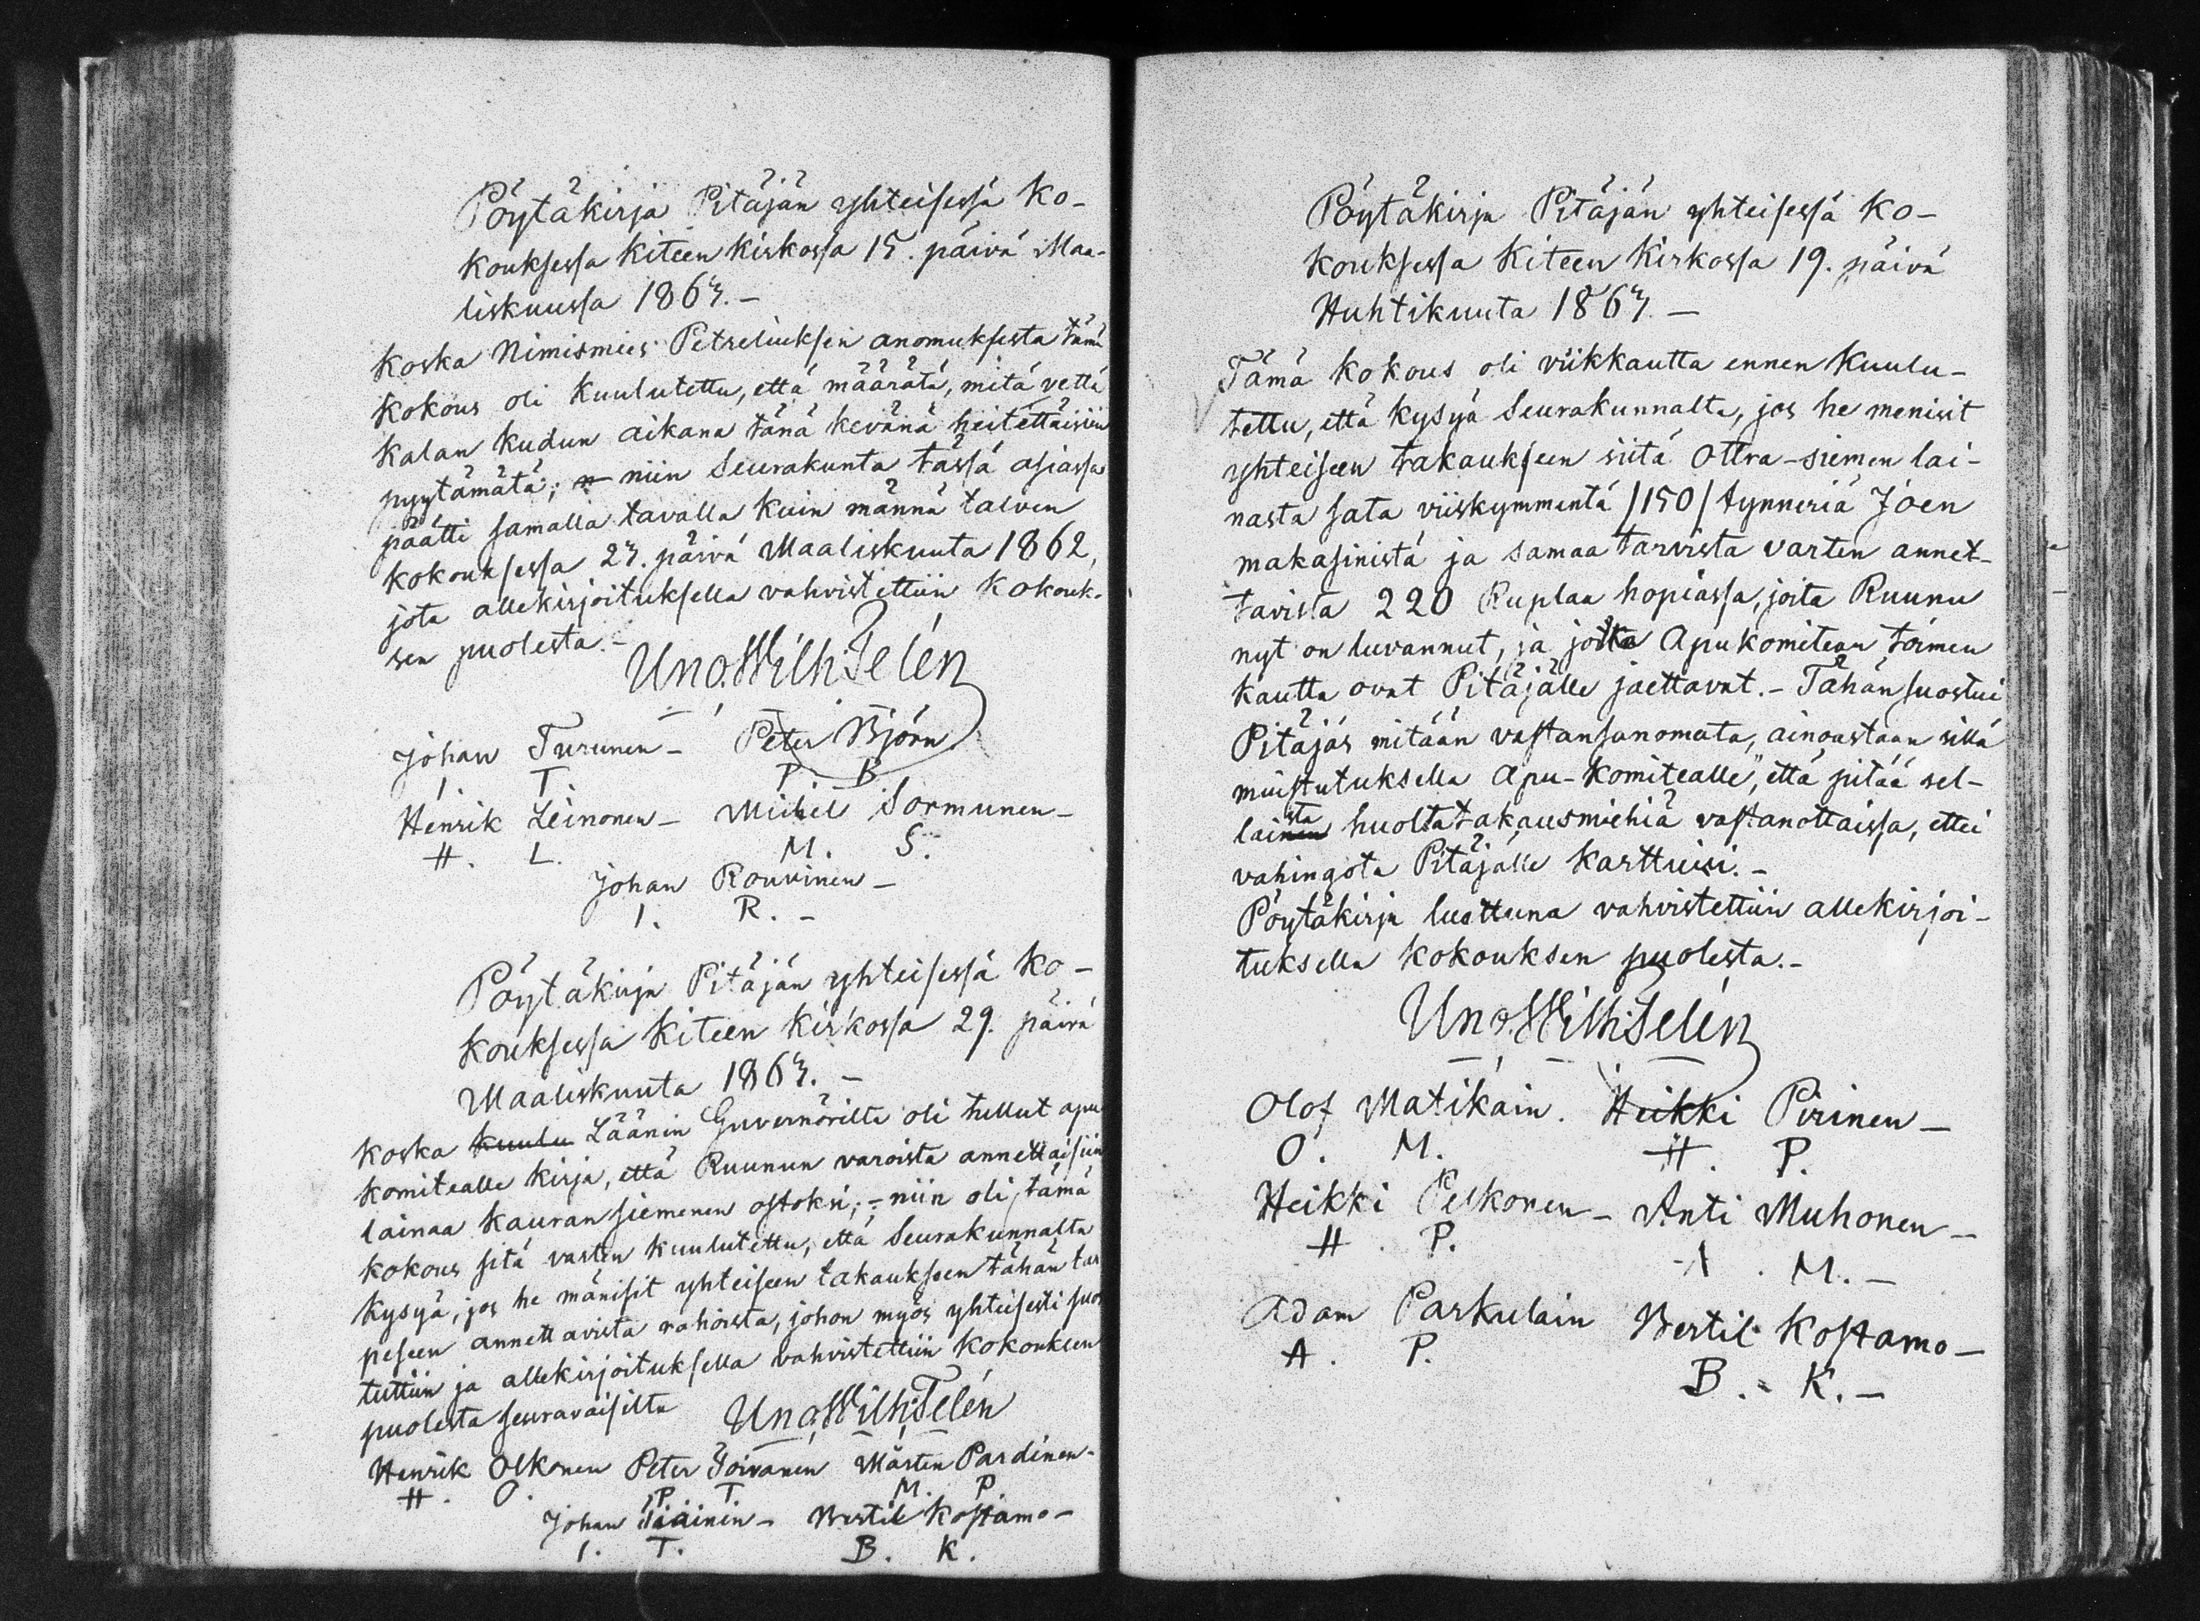 Pöytäkirja Pitäjän yhteisessä ko-
kouksessa Kiteen Kirkossa 15. päivä Maa-
liskuussa 1863. -
Koska Nimismies Petreliuksen anomuksesta tämä
kokous oli kuulutettu, että määrätä, mitä vettä
kalan kudun aikana tänä kevänä heitettäisiin
pyytämätä; n niin Seurakunta tässä asiassa
päätti samalla tavalla kuin männä talven
kokouksessa 23. päivä Maaliskuuta 1862,
jota allekirjoituksella vahvistettiin kokouk-
sen puolesta. -
Uno Wilh: Telén
Johan Turunen - Peter Björn
I T P B
Henrik Leinonen - Michel Sormunen -
H. L. M. S.
Johan Rouvinen -
I. R. -
Pöytäkirja Pitäjän yhteisessä ko-
kouksessa Kiteen Kirkossa 29. päivä
Maaliskuuta 1863. -
Koska kuulu Läänin Guvernörilta oli tullut apu
komitealle kirja, että Ruunun varoista annettaisiin
lainaa kauran siemenen ostoksi; - niin oli tämä
kokous sitä varten kuulutettu, että Seurakunnalta
kysyä, jos he mänisit yhteiseen takaukseen tähän tar
peseen annettavista rahoista, johon myös yhteisesti suos
tuttiin ja allekirjoituksella vahvistettiin kokouksen
puolesta seuravaisilta Uno Wilh: Telén
Henrik Olkonen Peter Toivanen Mårten Pardinen -
H. O. P T M. P.
Johan Tiainen - Bertil Kostamo -
I. T. B. K.
Pöytäkirja Pitäjän yhteisessä ko-
kouksessa Kiteen Kirkossa 19. päivä
Huhtikuuta 1863. -
Tämä kokous oli viikkautta ennen kuulu-
tettu, että kysyä Seurakunnalta, jos he menisit
yhteiseen takaukseen siitä Ottra-siemen lai-
nasta sata viiskymmentä /150/ tynneriä Joen
makasinistä ja samaa tarvista varten annet-
tavista 220 Ruplaa hopiassa, joita Ruunu
nyt on luvannut, ja jotka Apukomitean toimen
kautta ovat Pitäjälle jaettavat. - Tähän suostui
Pitäjäs mitään vastansanomata, ainoastaan sillä
muistutuksella Apu-komitealle, että pitää sel-
laista huolta takausmiehiä vastanottaissa, ettei
vahingota Pitäjälle karttuisi. -
Pöytäkirja luettuna vahvistettiin allekirjoi-
tuksella kokouksen puolesta. -
Uno Wilh: Telén
Olof Matikain. Heikki Pirinen -
O. M. H. P.
Heikki Pelkonen - Anti Muhonen -
H. P. A. M. -
Adam Parkulain Bertil Kostamo -
A. P. B. K. -